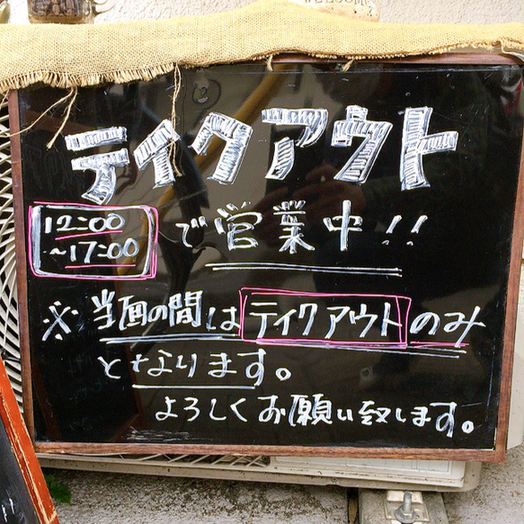 WELCOME
テイクアウト
12:00
~17:00 で営業中!!
※当面の間はテイクアウトのみ
となります。
よろしくお願い致します。